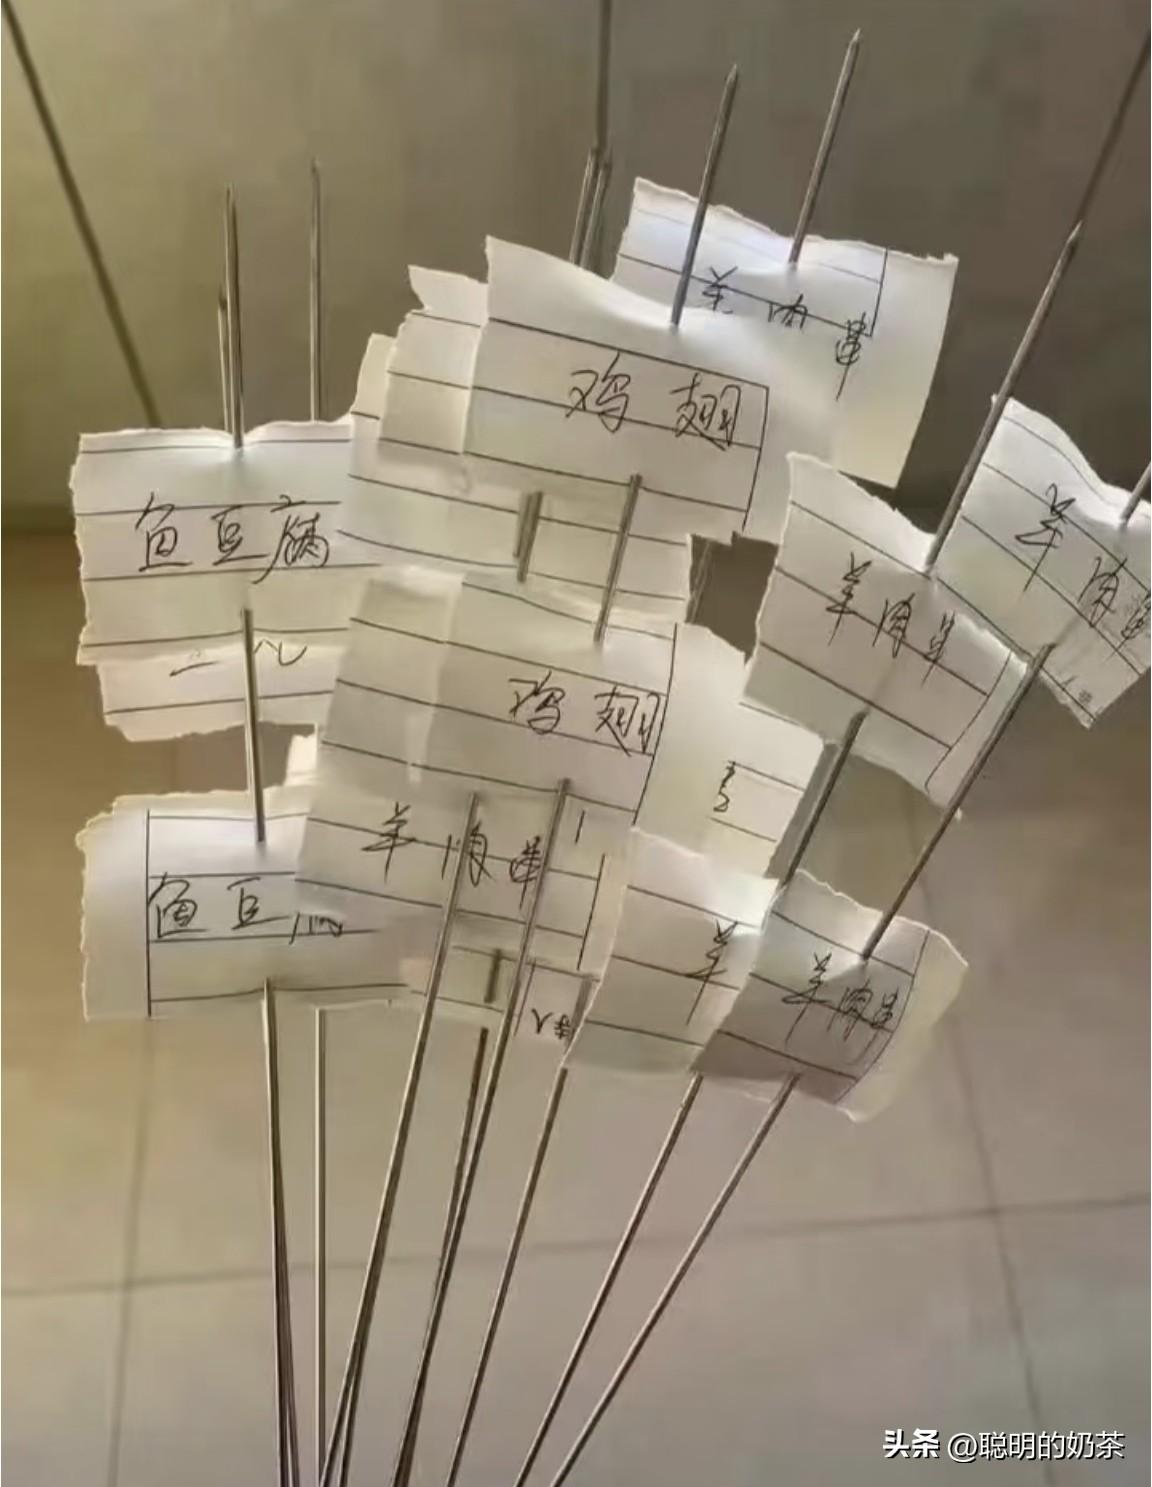 羊肉串
鸡翅
鱼豆腐
羊肉串
羊肉串
鸡翅
羊肉串
鱼豆腐
羊
羊肉串
头条 @聪明的奶茶